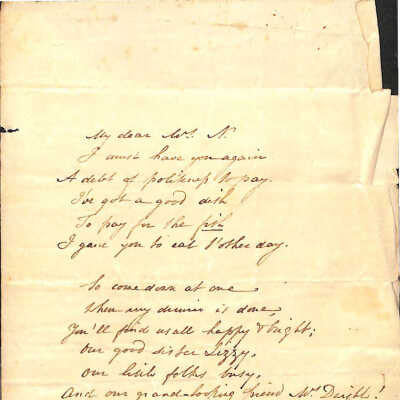 My dear Mrs. N.
I must have you again
A debt of politeness to pay.
I've got a good dish
To pay for the fish
I gave you to eat t'other day.
So come down at one
When my dinner is done,
You'll find us all happy & bright;
Our good sister Lizzy,
Our little folks busy,
And our grand-looking friend Mr. Dwight!